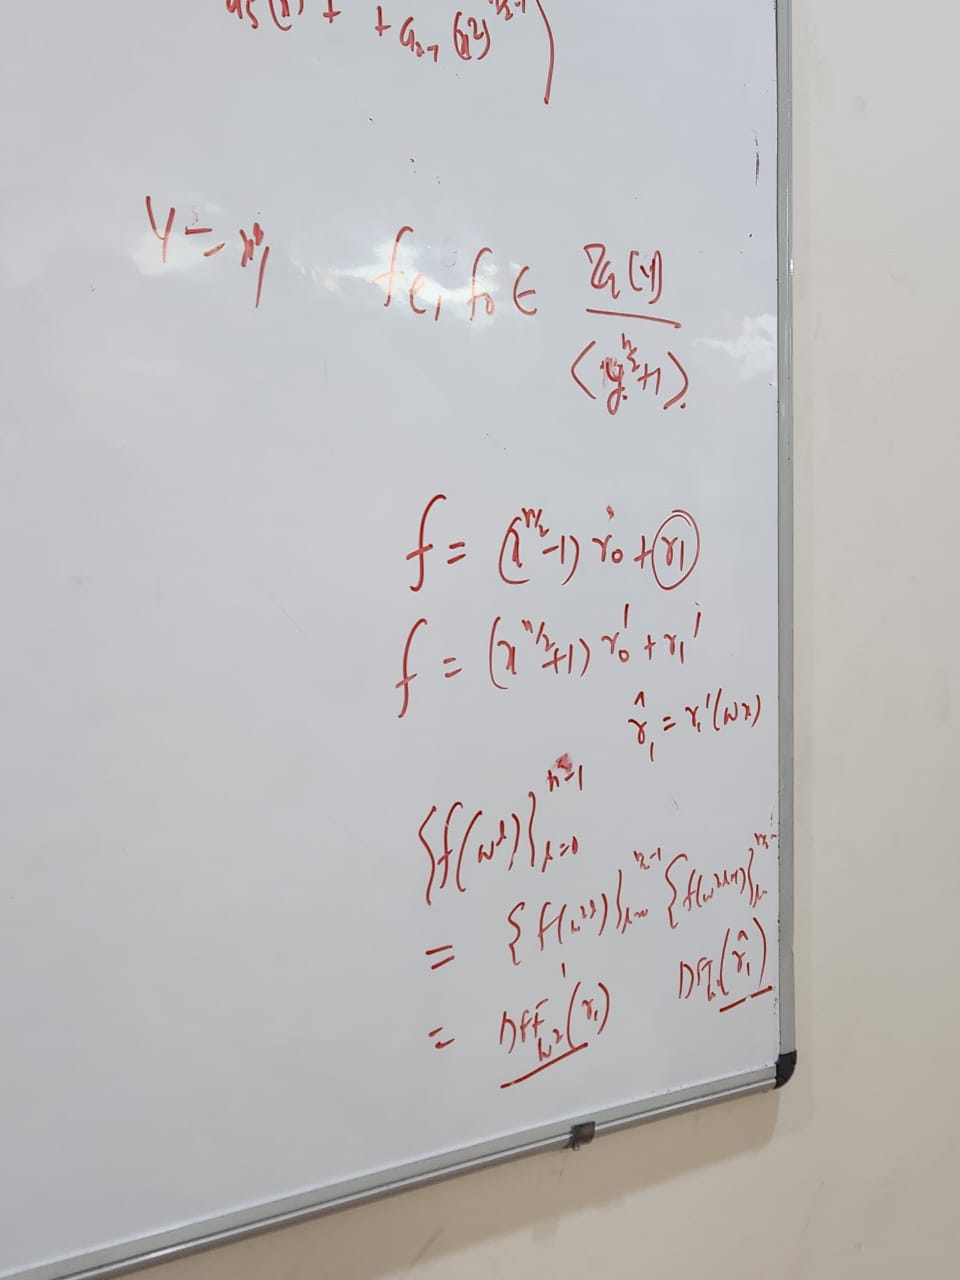 a₅(x) + + aₙ₋₁ (x²)^{n/2-1})
y = x², fe, fo ∈ ℤq[y] / <y^{n/2}+1>.
f = (x^{n/2}-1) r₀ + r₁
f = (x^{n/2}+1) r₀' + r₁'
r̂₁ = r₁'(ωx)
{f(ω^l)}_{l=0}^{n-1}
= {f(ω^{2l})}_{l=0}^{n/2-1} {f(ω^{2l+1})}_{l=}^{n/2-}
= DFT_{ω²}(r₁) DFT(r̂₁)